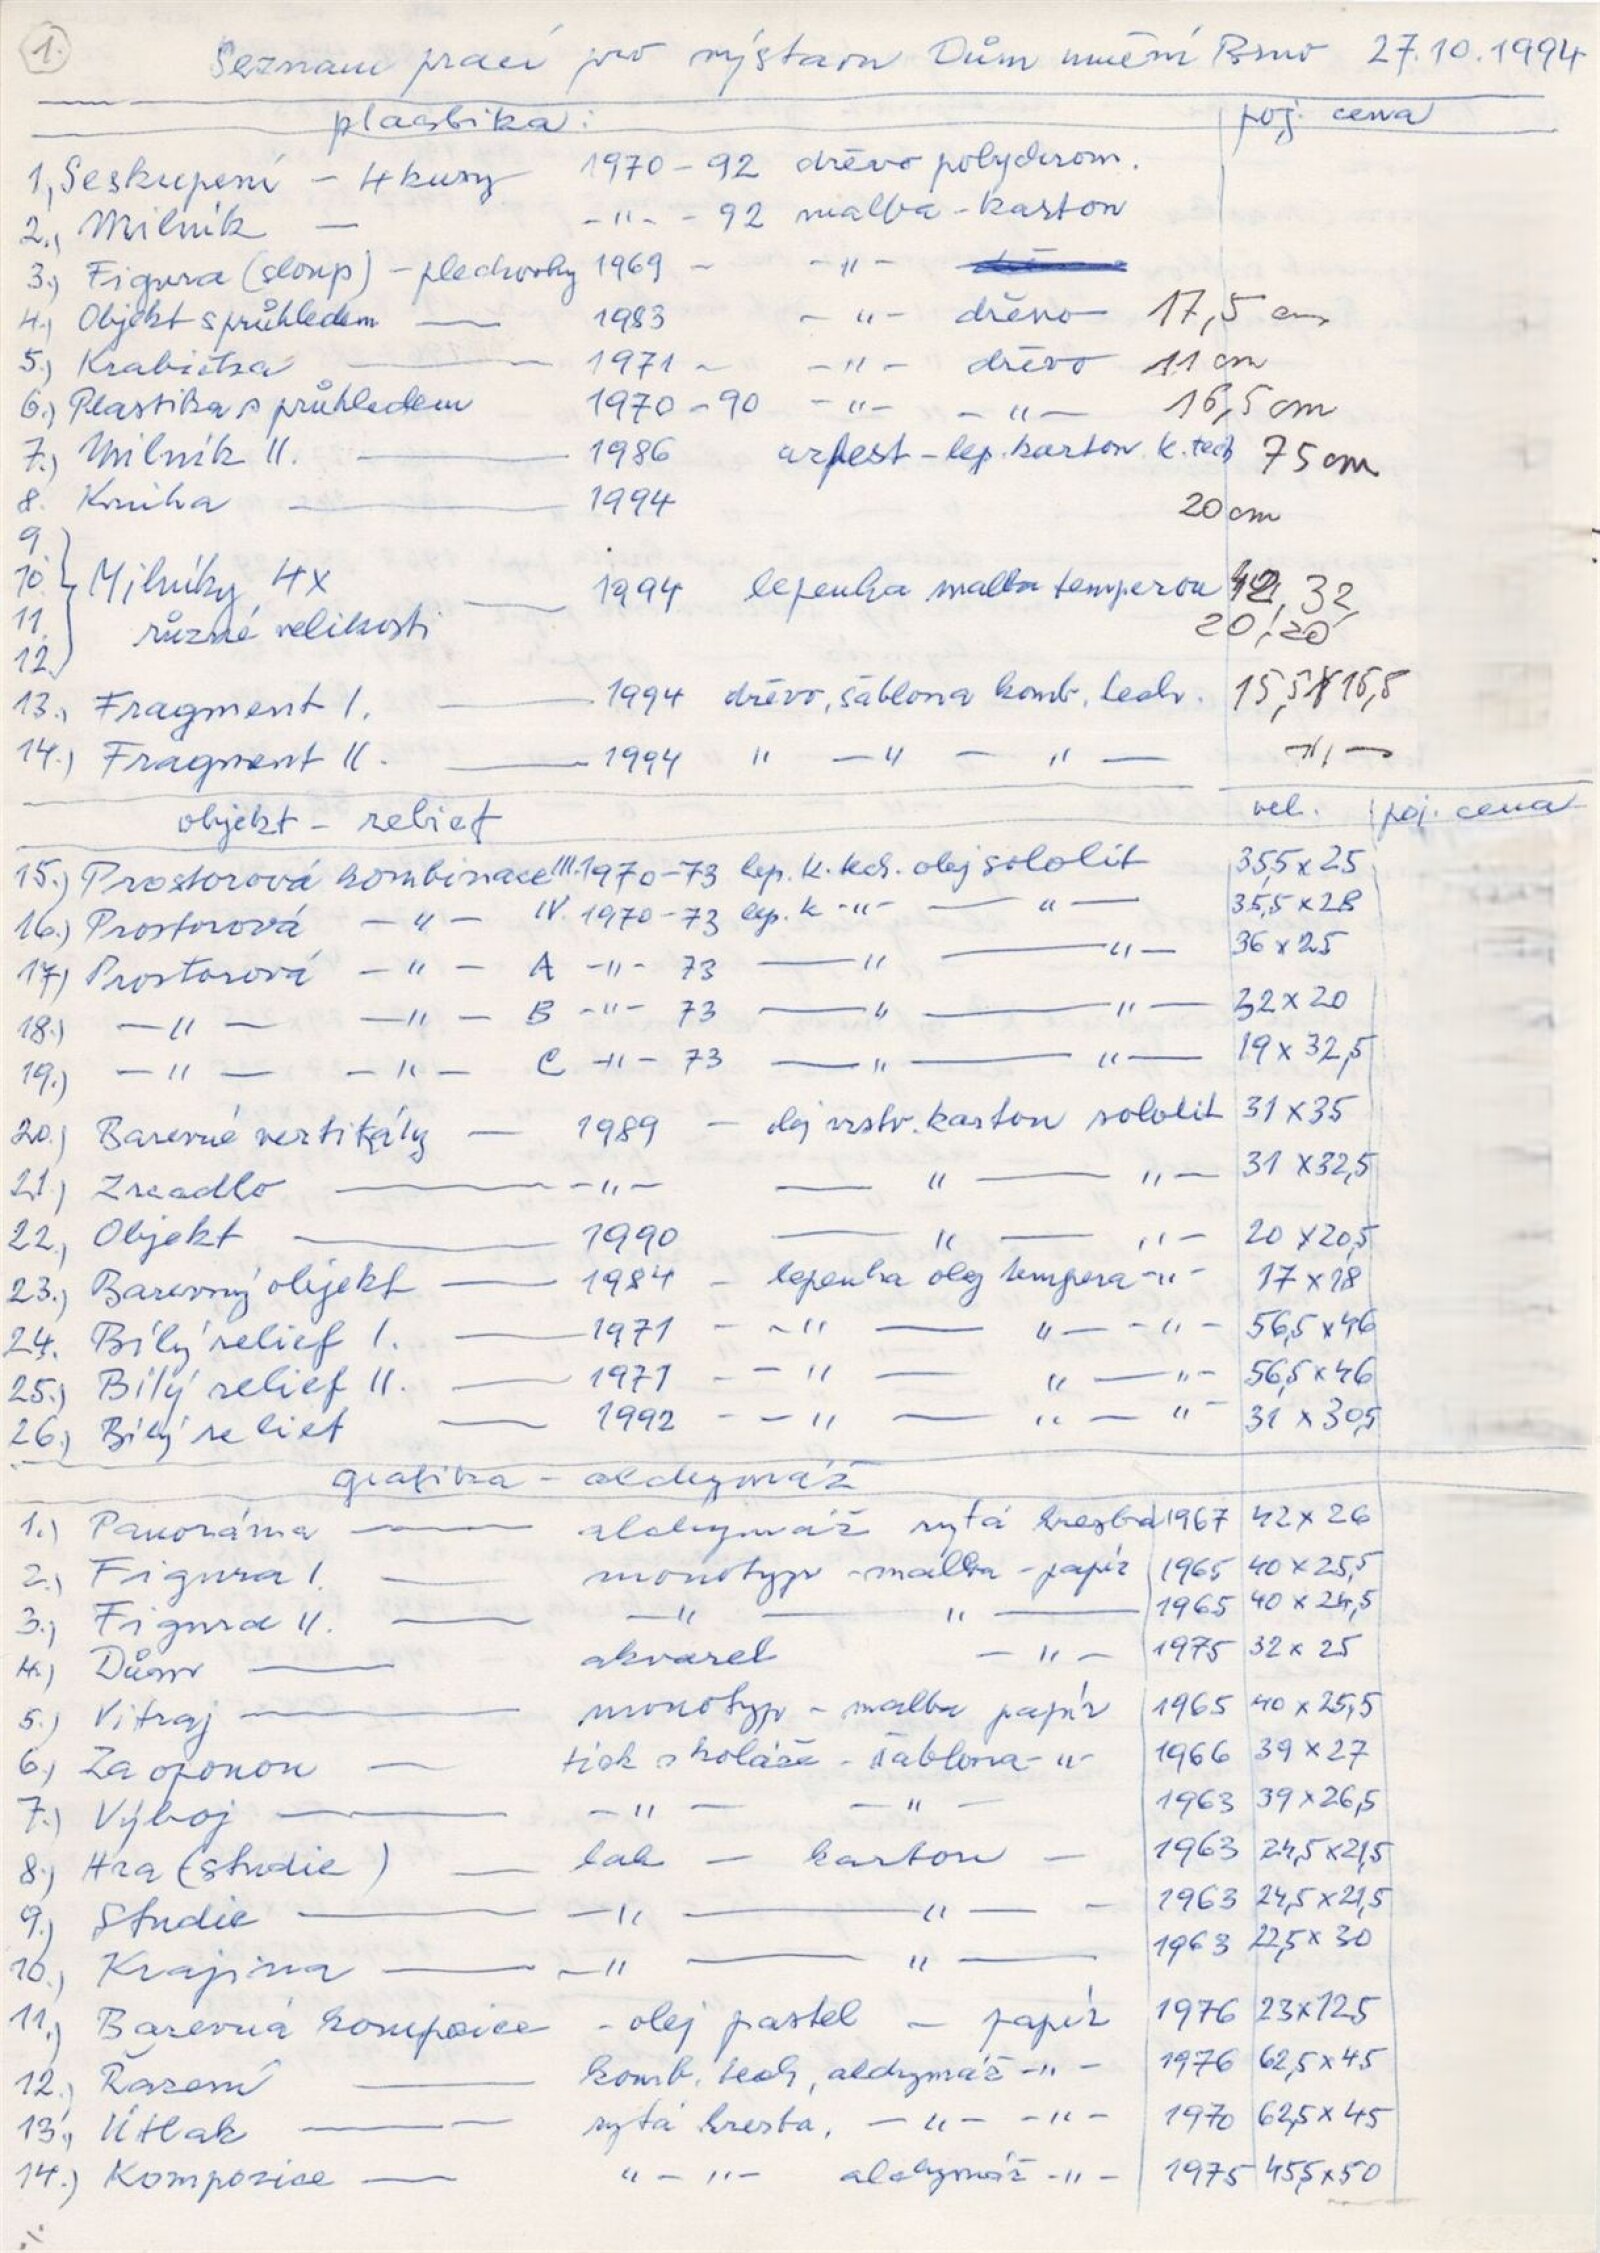 1.
Seznam prací pro výstavu Dům umění Brno 27.10.1994
plastika: poj. cena
1, Seskupení - 4 kusy 1970-92 dřevo polychrom.
2., Milník — -"- - 92 malba - karton
3., Figura (sloup) - plechovky 1969 - -"-
4., Objekt s průhledem — 1983 -"- dřevo 17,5 cm
5., Krabička — 1971 - -"- dřevo 11 cm
6., Plastika s průhledem 1970-90 -"- -"- 16,5 cm
7., Milník II. — 1986 - lep. karton k. tech 75 cm
8. Kniha — 1994 20 cm
9.
10. Milníky 4x — 1994 lepenka malba temperou 42, 32,
11. různé velikosti 20, 20
12.
13., Fragment I. — 1994 dřevo, šablona komb. tech. 15,5 x 16,5
14.) Fragment II. — 1994 " — " — " — -"-
objekt - relief vel. poj. cena
15.) Prostorová kombinace III. 1970-73 lep. k. tech. olej sololit 35,5 x 25
16.) Prostorová -"- IV. 1970-73 lep. k -"- — " — 35,5 x 28
17) Prostorová -"- A -"- 73 — " — " — 36 x 25
18.) -"- -"- B -"- 73 — " — " — 32 x 20
19.) -"- -"- C -"- 73 — " — " — 19 x 32,5
20.) Barevné vertikály — 1989 - olej vrstv. karton sololit 31 x 35
21.) Zrcadlo — -"- — " — " — 31 x 32,5
22., Objekt — 1990 — " — " — 20 x 20,5
23.) Barevný objekt — 1984 - lepenka olej tempera -"- 17 x 18
24. Bílý relief I. — 1971 - -" — " — -"- 56,5 x 46
25.) Bílý relief II. — 1971 - -" — " — "- 56,5 x 46
26.) Bílý relief — 1992 - -" — " — "- 31 x 30,5
grafika - alchymáž
1.) Panoráma — alchymáž rytá kresba 1967 42 x 26
2.) Figura I. — monotyp - malba - papír 1965 40 x 25,5
3.) Figura II. — -" — " — 1965 40 x 24,5
4.) Dům — akvarel -"- 1975 32 x 25
5.) Vitraj — monotyp - malba papír 1965 40 x 25,5
6.) Za oponou — tisk z koláže - šablona -"- 1966 39 x 27
7.) Výboj — -"- -"- 1963 39 x 26,5
8.) Hra (studie) — lak - karton - 1963 24,5 x 21,5
9.) Studie — -" — " — - 1963 24,5 x 21,5
10., Krajina — -" — " — 1963 22,5 x 30
11.) Barevná kompozice - olej pastel - papír 1976 23 x 12,5
12.) Řazení — komb. tech, alchymáž -"- 1976 62,5 x 45
13., Útlak — rytá kresba, -"- -"- 1970 62,5 x 45
14.) Kompozice — " - "- alchymáž -"- 1975 45,5 x 50